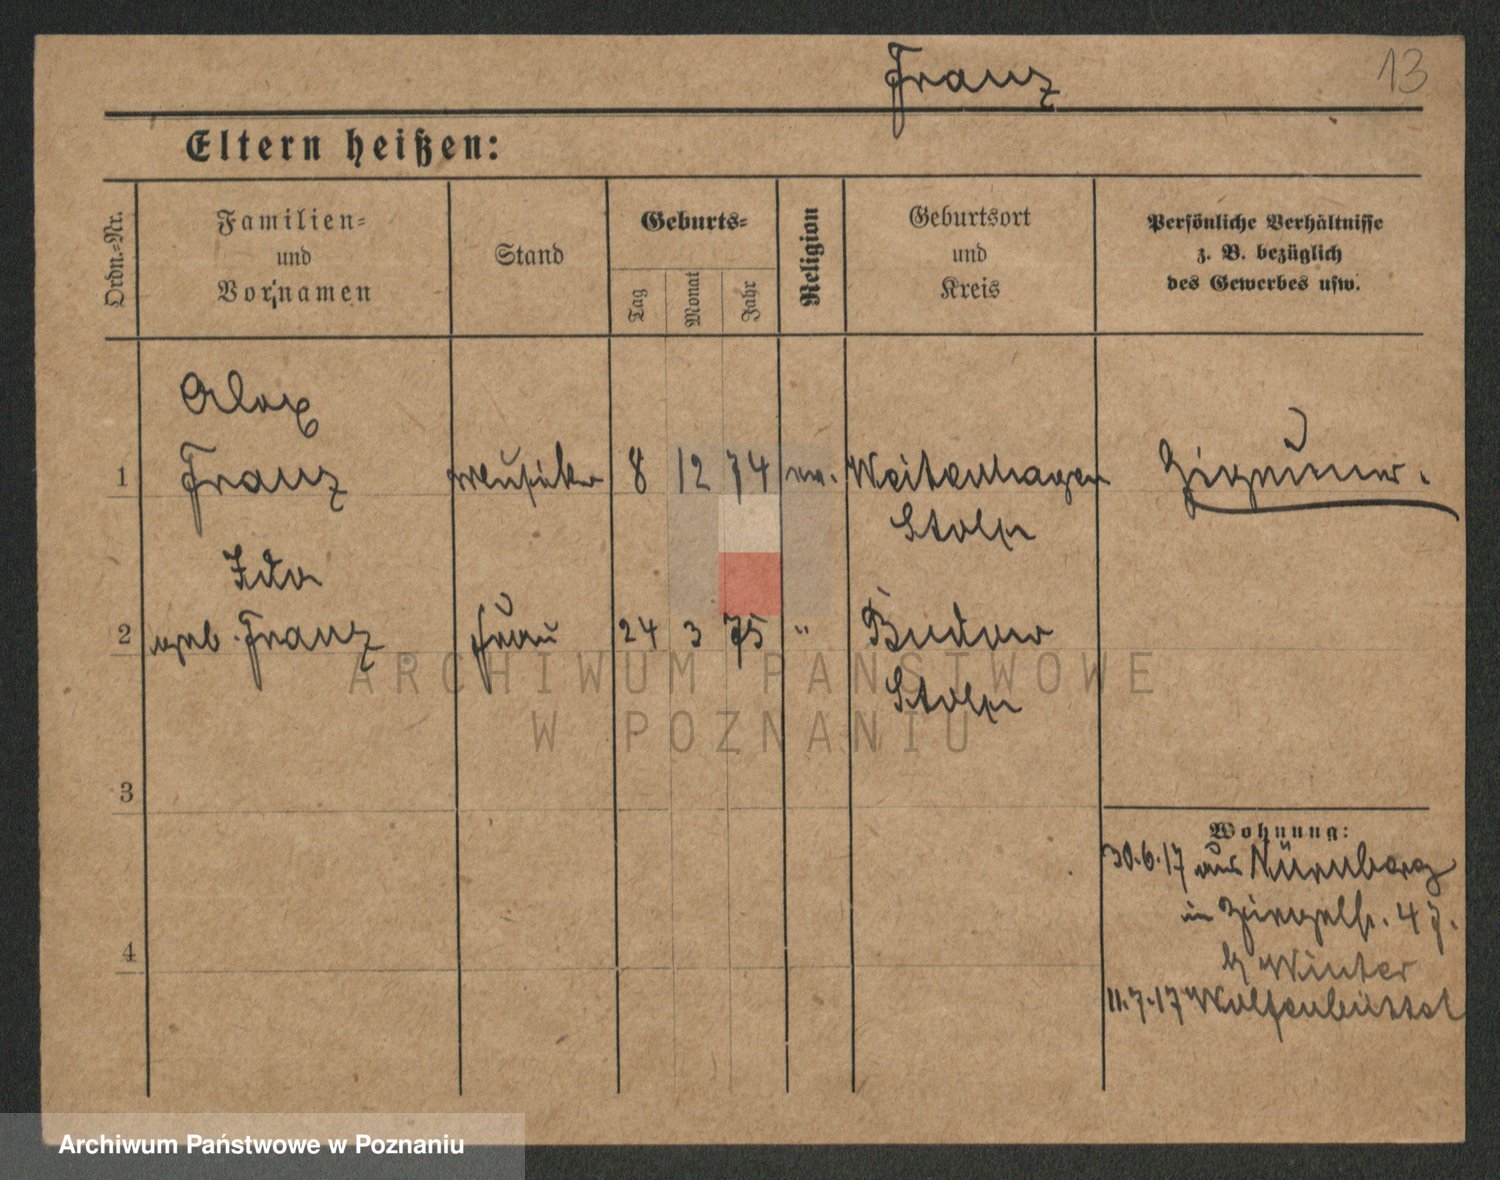 Franz
13
Eltern heißen:
Ordn.=Nr.
Familien=
und
Vornamen
Stand
Geburts=
Tag
Monat
Jahr
Religion
Geburtsort
und
Kreis
Persönliche Verhältnisse
z. B. bezüglich
des Gewerbes usw.
Alex
1 Franz Musiker 8 12 74 ev. Weitenhagen Zigeuner.
Stolp
Ida
2 geb. Franz Frau 24 3 75 " Budow
Stolp
3
Wohnung:
30.6.17 aus Nürnberg
in Ziegelstr. 47.
b/ Winter
4
11.7.17 Wolfenbüttel
ARCHIWUM PAŃSTWOWE
W POZNANIU
Archiwum Państwowe w Poznaniu